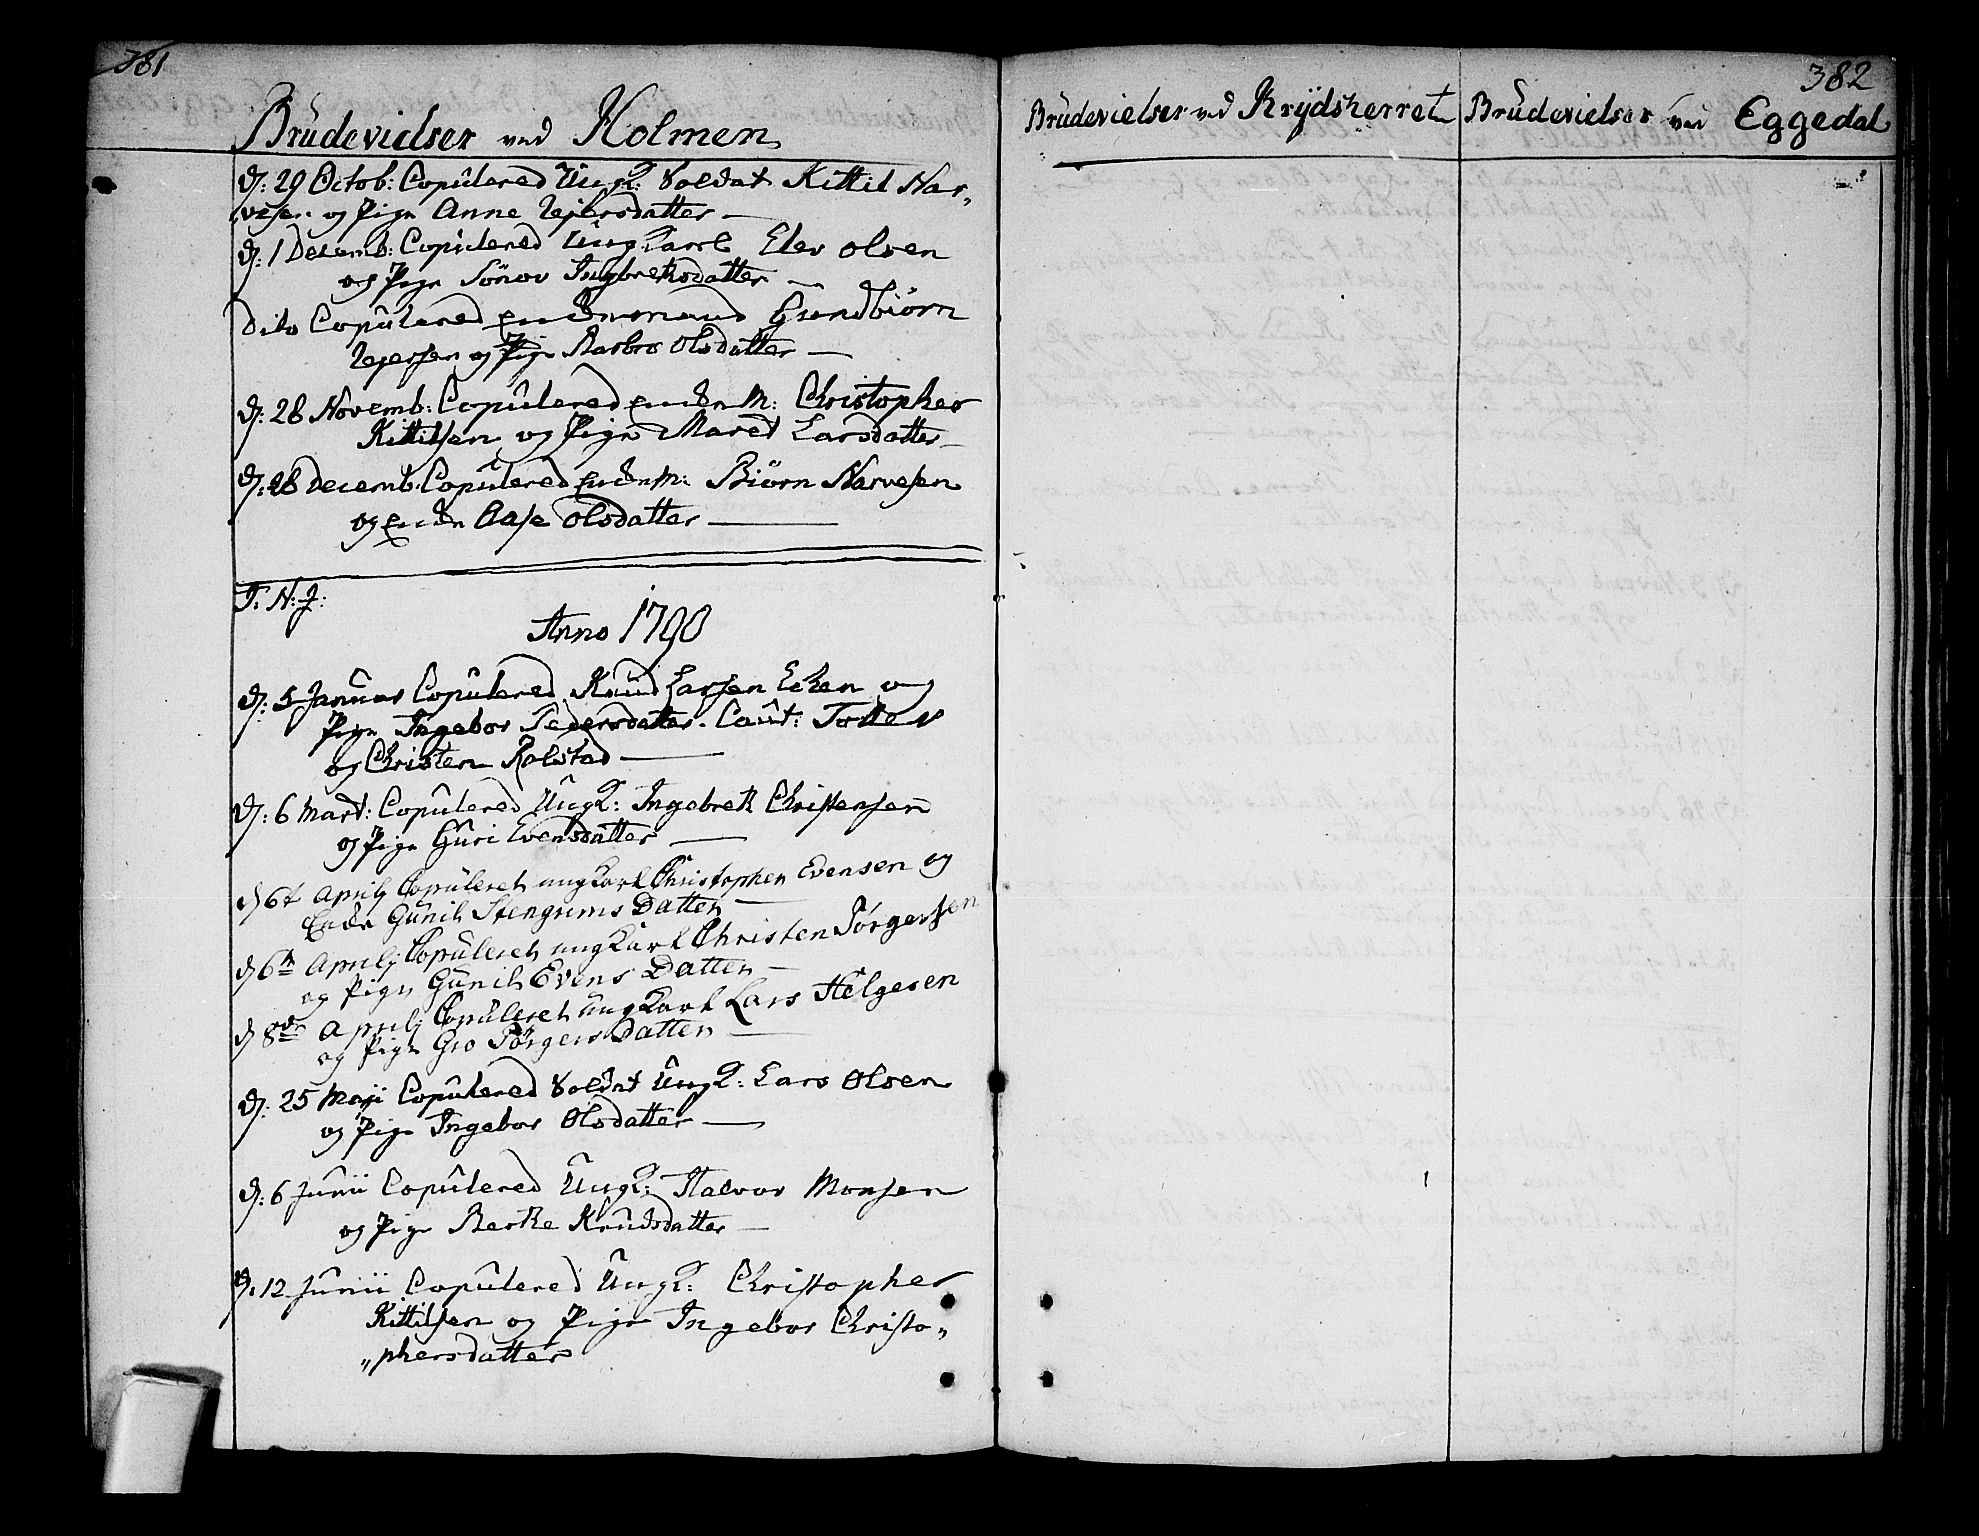 381
Brüdevielser ved Holmen
D: 29 Octob: Copülered Üngk: Soldat Kittil Nar„
„vesen og Pige Anne Rejersdatter —
D: 1 Decemb: Copülered Üngkarl Elev Olsen
og Pige Sönov Ingbretksdatter —
Dito Copülered Enckemand Gundbiörn
Rejersen og Pige Barbro Olsdatter —
D: 28 Novemb: Copülered EnckeM: Christopher
Kittilsen og Pige Mared Larsdatter
D: 28 Decemb: Copülered EnckeM: Biörn Narvesen
og Encke Aase Olsdatter —
I: N: J:
Anno 1790
D: 5 Januar Copülered Knüd Larsen Eken og
Pige Ingebor Pedersdatter. Caut: Totter
og Christen Kolstad —
D: 6 Mart: Copülered Üngk: Ingebrett Christensen
og Pige Güri Evensdatter —
d 6t Aprilj Copüleret ungkarl Christopher Evensen og
Enke Günil Stengrims Datter —
d 6te Aprilj Copüleret ungkarl Christen Jörgensen
og Pige Günil Evens Datter —
d 8de Aprilj Copüleret ungkarl Lars Helgesen
og Pige Gro Jörgens Datter —
D: 25 Maji Copülered Soldat Üngk: Lars Olsen
og Pige Ingebor Olsdatter —
D: 6 Junii Copülered Üngk: Halvor Monsen
og Pige Berthe Knudsdatter —
D: 12 Junii Copülered Üngk: Christopher
Kittilsen og Pige Ingebor Christo„
„phersdatter
382
Brüdevielser ved Krydsherret
Brüdevielser ved Eggedal